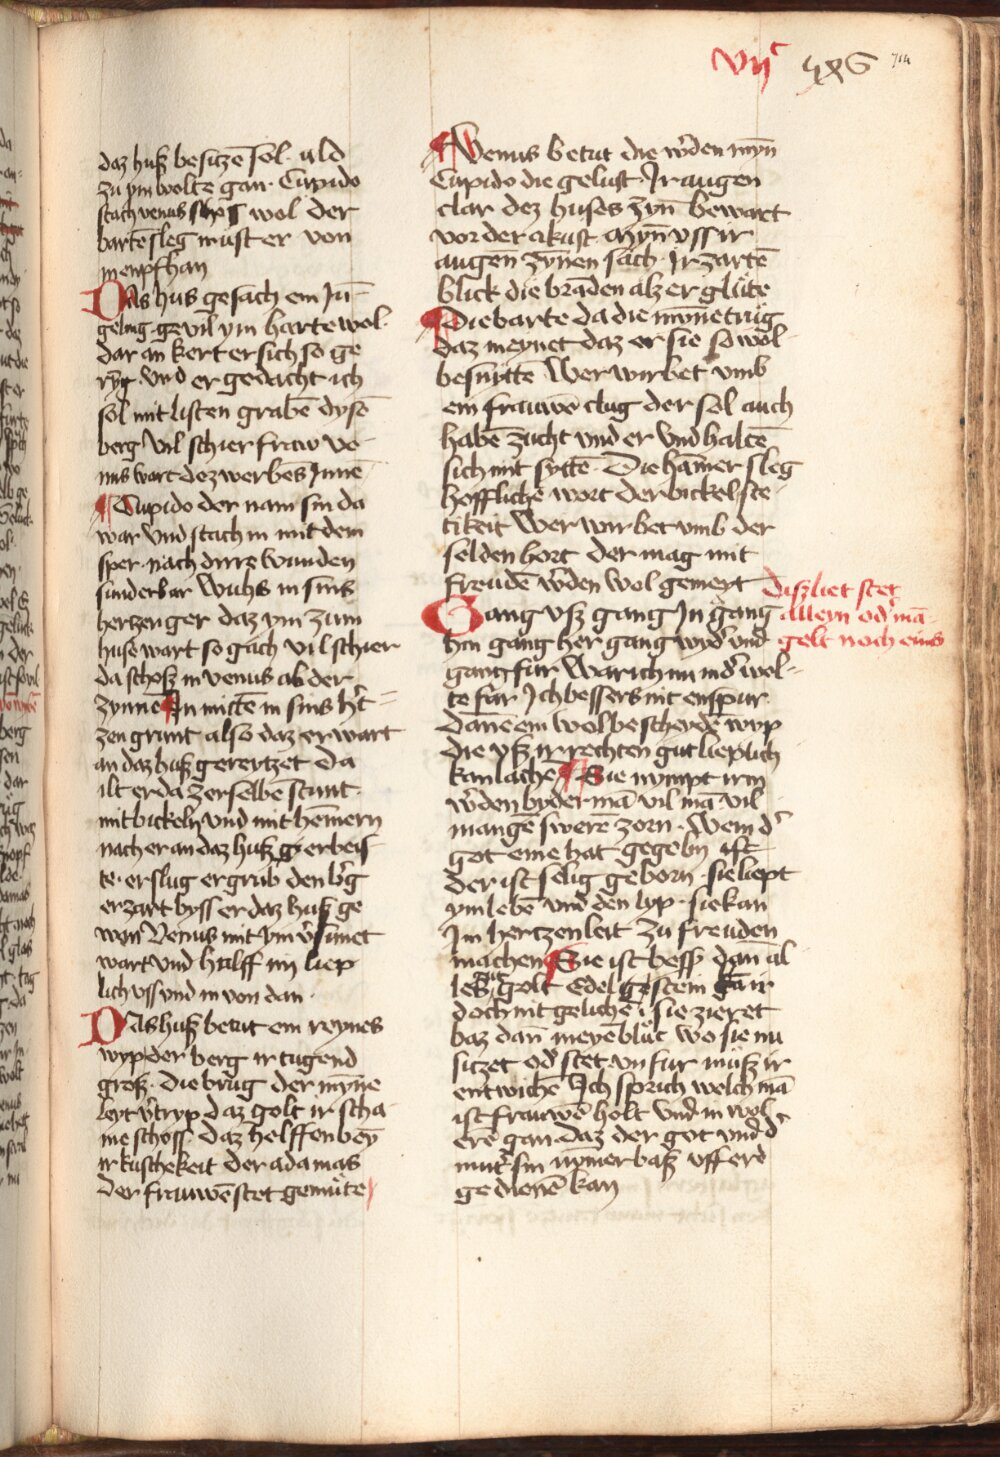 vijᶜ lxxv 714
daz husz besitzē sol · ald
zu ym wolte gan · Cupido
stach venus wol der
bartē sleg must er von
in enpfhan
DAs hus gesach em Jn̄-
geling · gevil ym harte wol ·
dar an kert er sich so ge
ryg · vnd er gedacht ich
sol mit listen grabē dysē
berg vil schier fraw ve-
nus wart dez werbes Jnnē
Cupido der nam sin da
war vnd stach in mit dem
sper · nach dirre wunden
sunderbar wuhs in sins
hertzen ger daz ym zum
huse wart so gach vil schier
da schosz in venus ab der
zynnē Jn mittē in sins h̾t-
zen grunt also daz er wart
an daz husz gereitzet da
ilt er da zer selbē stunt
mit bickeln vnd mit hem̄ern
nach er an daz husz erbeis
te · er slug er grub den b̾g
er zart bysz er daz husz ge
wan Venus mit ym v̾sunet
wart vnd hulff im liep
lich vff vnd in von dan ·
DAs husz betut ein reynes
wyp der berg ir tugend
grosz · die brug der mynne
leyt v̾tryp daz golt ir scha-
me schosz · daz helffenbeȳ
ir kuschekeit der adamas
der frauwē stet gemüte
Venus betut die w̾den myn
Cupido die gelust · Jr augen
clar dez huses zyn̄ bewart
vor der akust · myn̄ vsz ir
augen zynnen sach · ir zartē
blick die braden alz er glute
Die barte da die mynne trüg
daz meynet daz er sie so wol-
besnytte Wer wirbet vmb
ein frauwē clug der sol auch
habē zucht vnd er vnd haltē
sich mit syttē · Die ham̄er sleg
hoffliche wort der bickel ste-
tikeit Wer wirbet vmb der
selden hort der mag mit
freudē w̾den wol gemeyt
Disz liet stet
allein od̾ mā-
gelt noch eins
Gang vsz gang Jn gang
hin gang her gang wyd̾ vnd
gang für Warich im ind̾t wel-
te für Jch bessers nit enspur
dann̄ ein wol bescheydē wyp
die vsz ir rechten gut lieplich
kan lachē Sie nympt irm
w̾den byderman̄ vil ma vil
mangē swerē zorn · Wem d̾
got eine hat gegebn̄ ist
der ist selig geborn · sie liept
ym lebē vnd den lyp · sie kan
Jm hertzen leit zu freuden
machen Sie ist bessz dan̄ al
les golt Edel gestein ir
doch nit gelichē sie zieret
baz dan̄ meyē blüt wo sie nu
sitzet od̾ stet vn fur müsz ir
entwichē Jch sprich welch mā
ist frauwē holt vnd in wol
erē gan daz der got vnd d̾
mut̾ sin nym̄er basz vff erd
ge dienē kan